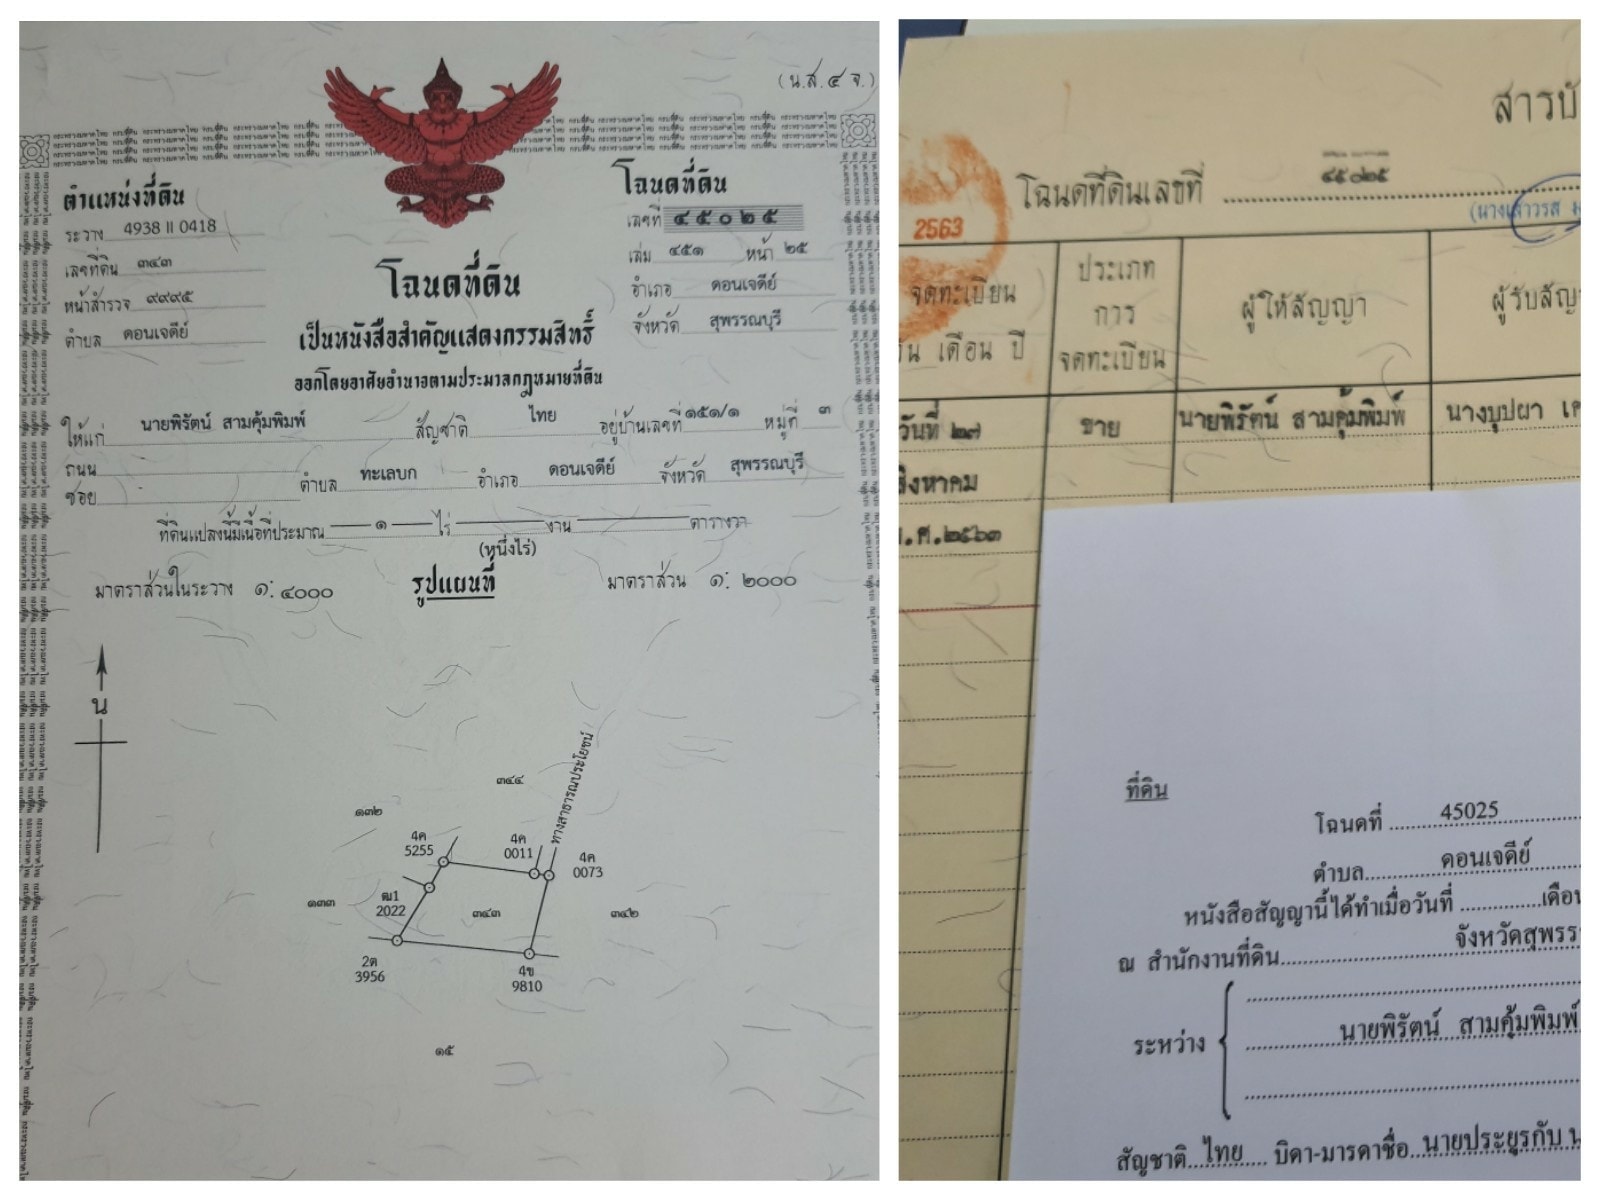 (น.ส.๔ จ.)
ตำแหน่งที่ดิน
ระวาง 4938 II 0418
เลขที่ดิน ๓๔๓
หน้าสำรวจ ๙๙๙๕
ตำบล ดอนเจดีย์
โฉนดที่ดิน
เลขที่ ๔๕๐๒๕
เล่ม ๔๕๑ หน้า ๒๕
อำเภอ ดอนเจดีย์
จังหวัด สุพรรณบุรี
โฉนดที่ดิน
เป็นหนังสือสำคัญแสดงกรรมสิทธิ์
ออกโดยอาศัยอำนาจตามประมวลกฎหมายที่ดิน
ให้แก่ นายพิรัตน์ สามคุ้มพิมพ์ สัญชาติ ไทย อยู่บ้านเลขที่ ๑๕๑/๑ หมู่ที่ ๓
ถนน
ซอย ตำบล ทะเลบก อำเภอ ดอนเจดีย์ จังหวัด สุพรรณบุรี
ที่ดินแปลงนี้มีเนื้อที่ประมาณ ๑ ไร่ งาน ตารางวา
(หนึ่งไร่)
มาตราส่วนในระวาง ๑:๔๐๐๐ รูปแผนที่ มาตราส่วน ๑:๒๐๐๐
น
ทางสาธารณประโยชน์
๓๔๔
๑๓๒
4ค
5255
4ค
0011
4ค
0073
๑๓๓
ฒ1
2022
๓๔๓
๓๔๒
2ต
3956
4ข
9810
๑๕
สารบั
โฉนดที่ดินเลขที่ ๔๕๐๒๕
2563
จดทะเบียน
วัน เดือน ปี
ประเภท
การ
จดทะเบียน
ผู้ให้สัญญา
ผู้รับสัญ
วันที่ ๒๗ ขาย นายพิรัตน์ สามคุ้มพิมพ์ นางบุปผา
สิงหาคม
พ.ศ.๒๕๖๓
ที่ดิน
โฉนดที่ 45025
ตำบล ดอนเจดีย์
หนังสือสัญญานี้ได้ทำเมื่อวันที่ เดือน
ณ สำนักงานที่ดิน จังหวัดสุพรร
ระหว่าง นายพิรัตน์ สามคุ้มพิมพ์
สัญชาติ ไทย บิดา-มารดาชื่อ นายประยูรกับ น